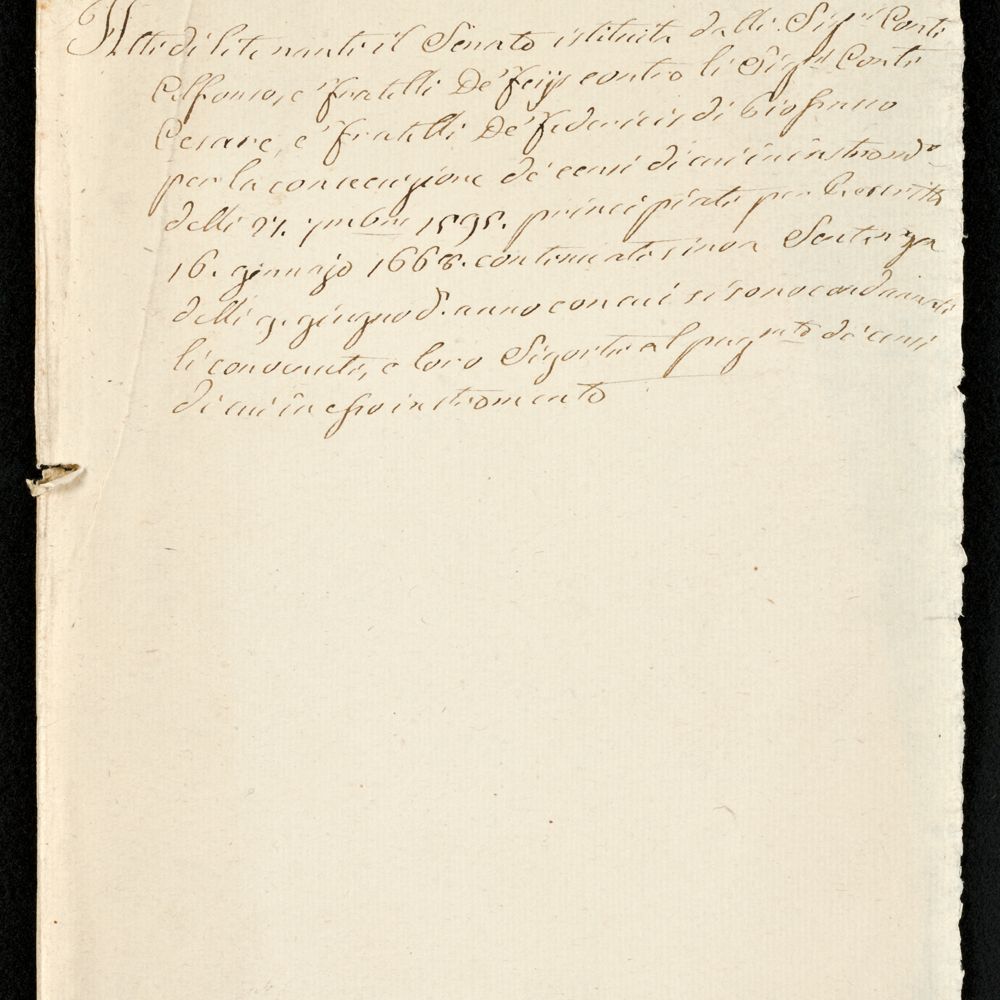 Atti di lite nanti il Senato istituita dalli Sig.ri Conti
Alfonso, e' fratelli De' Feijs contro li Sig.ri Conti
Cesare, e' fratelli De' Federicis di
per la consecuzione de' censi di cui in instrom.to
delli 27. 7mbre 1595. principiati per Rescritto
16. gennajo 1668. continuati sino a Sentenza
delli 9. giugno d.o anno con cui si sono condannati
li convenuti, e loro Sigortà al pagm.to de' censi
di cui in esso instromento